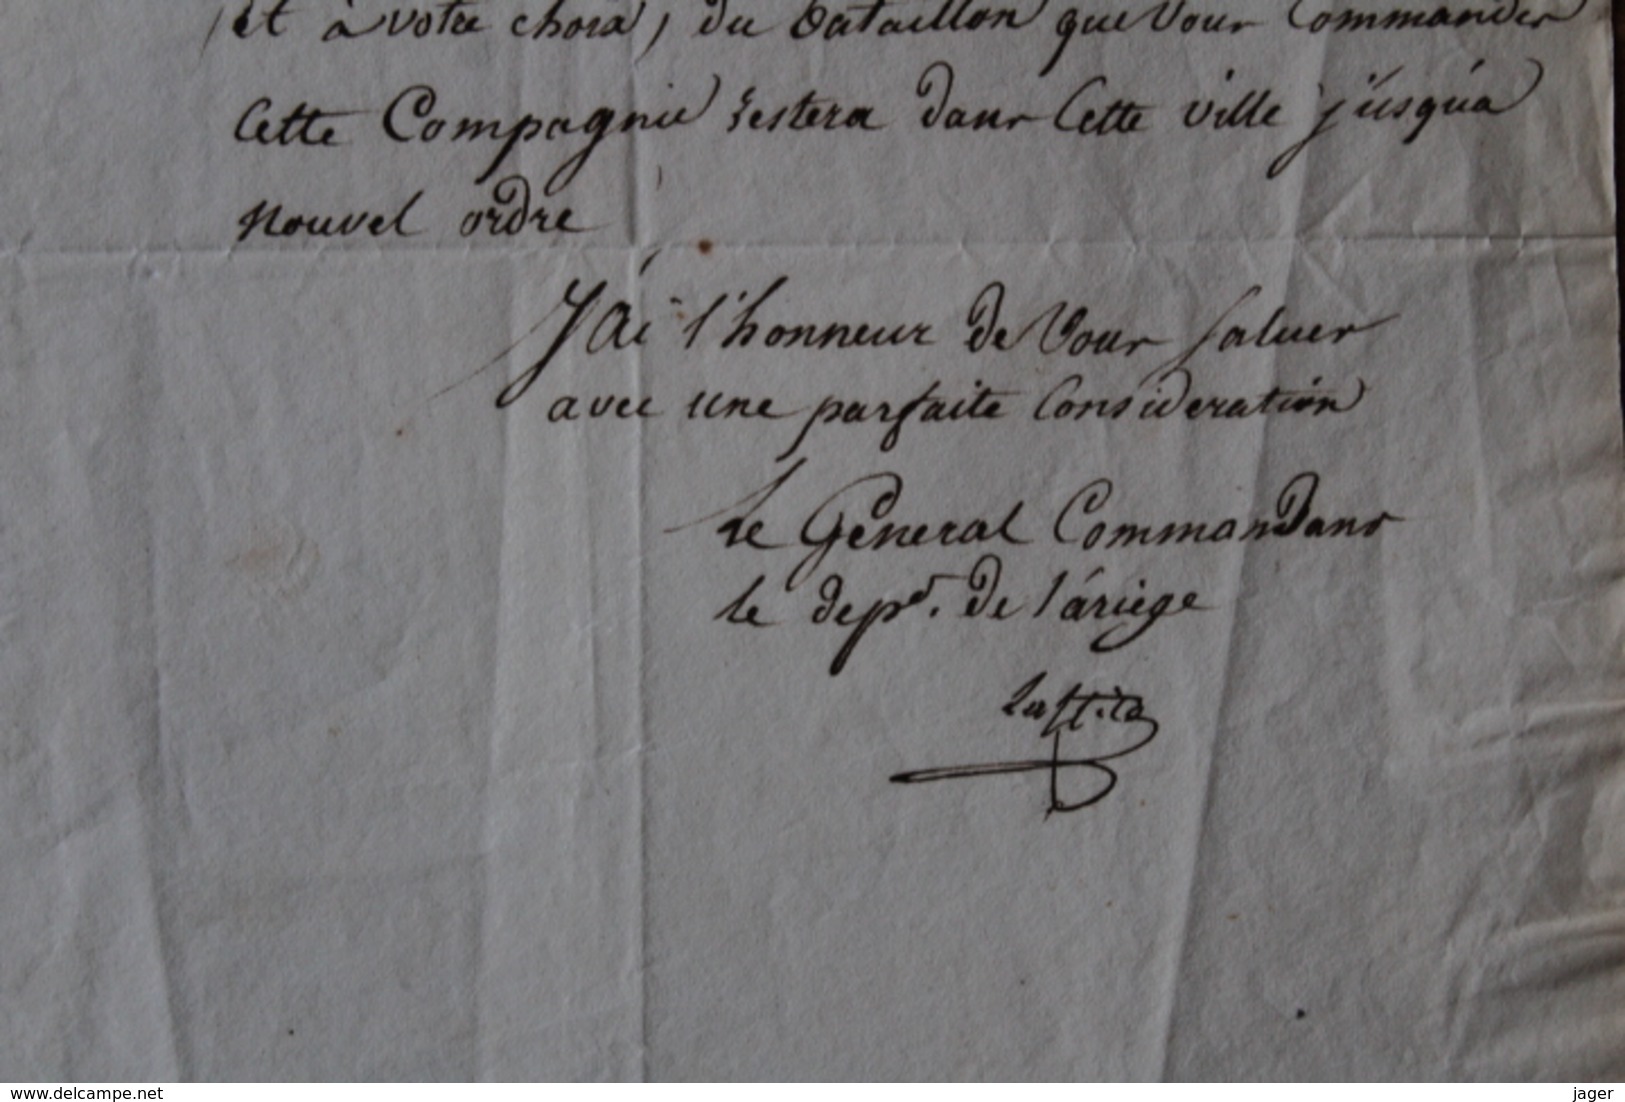 et à votre choix, du bataillon que vous Commandes
Cette Compagnie restera dans Cette ville jusqu'a
nouvel ordre
J'ai l'honneur de vous saluer
avec une parfaite Consideration
Le General Commandant
le depr. de l'ariege
Lastic
www.delcampe.net
jager